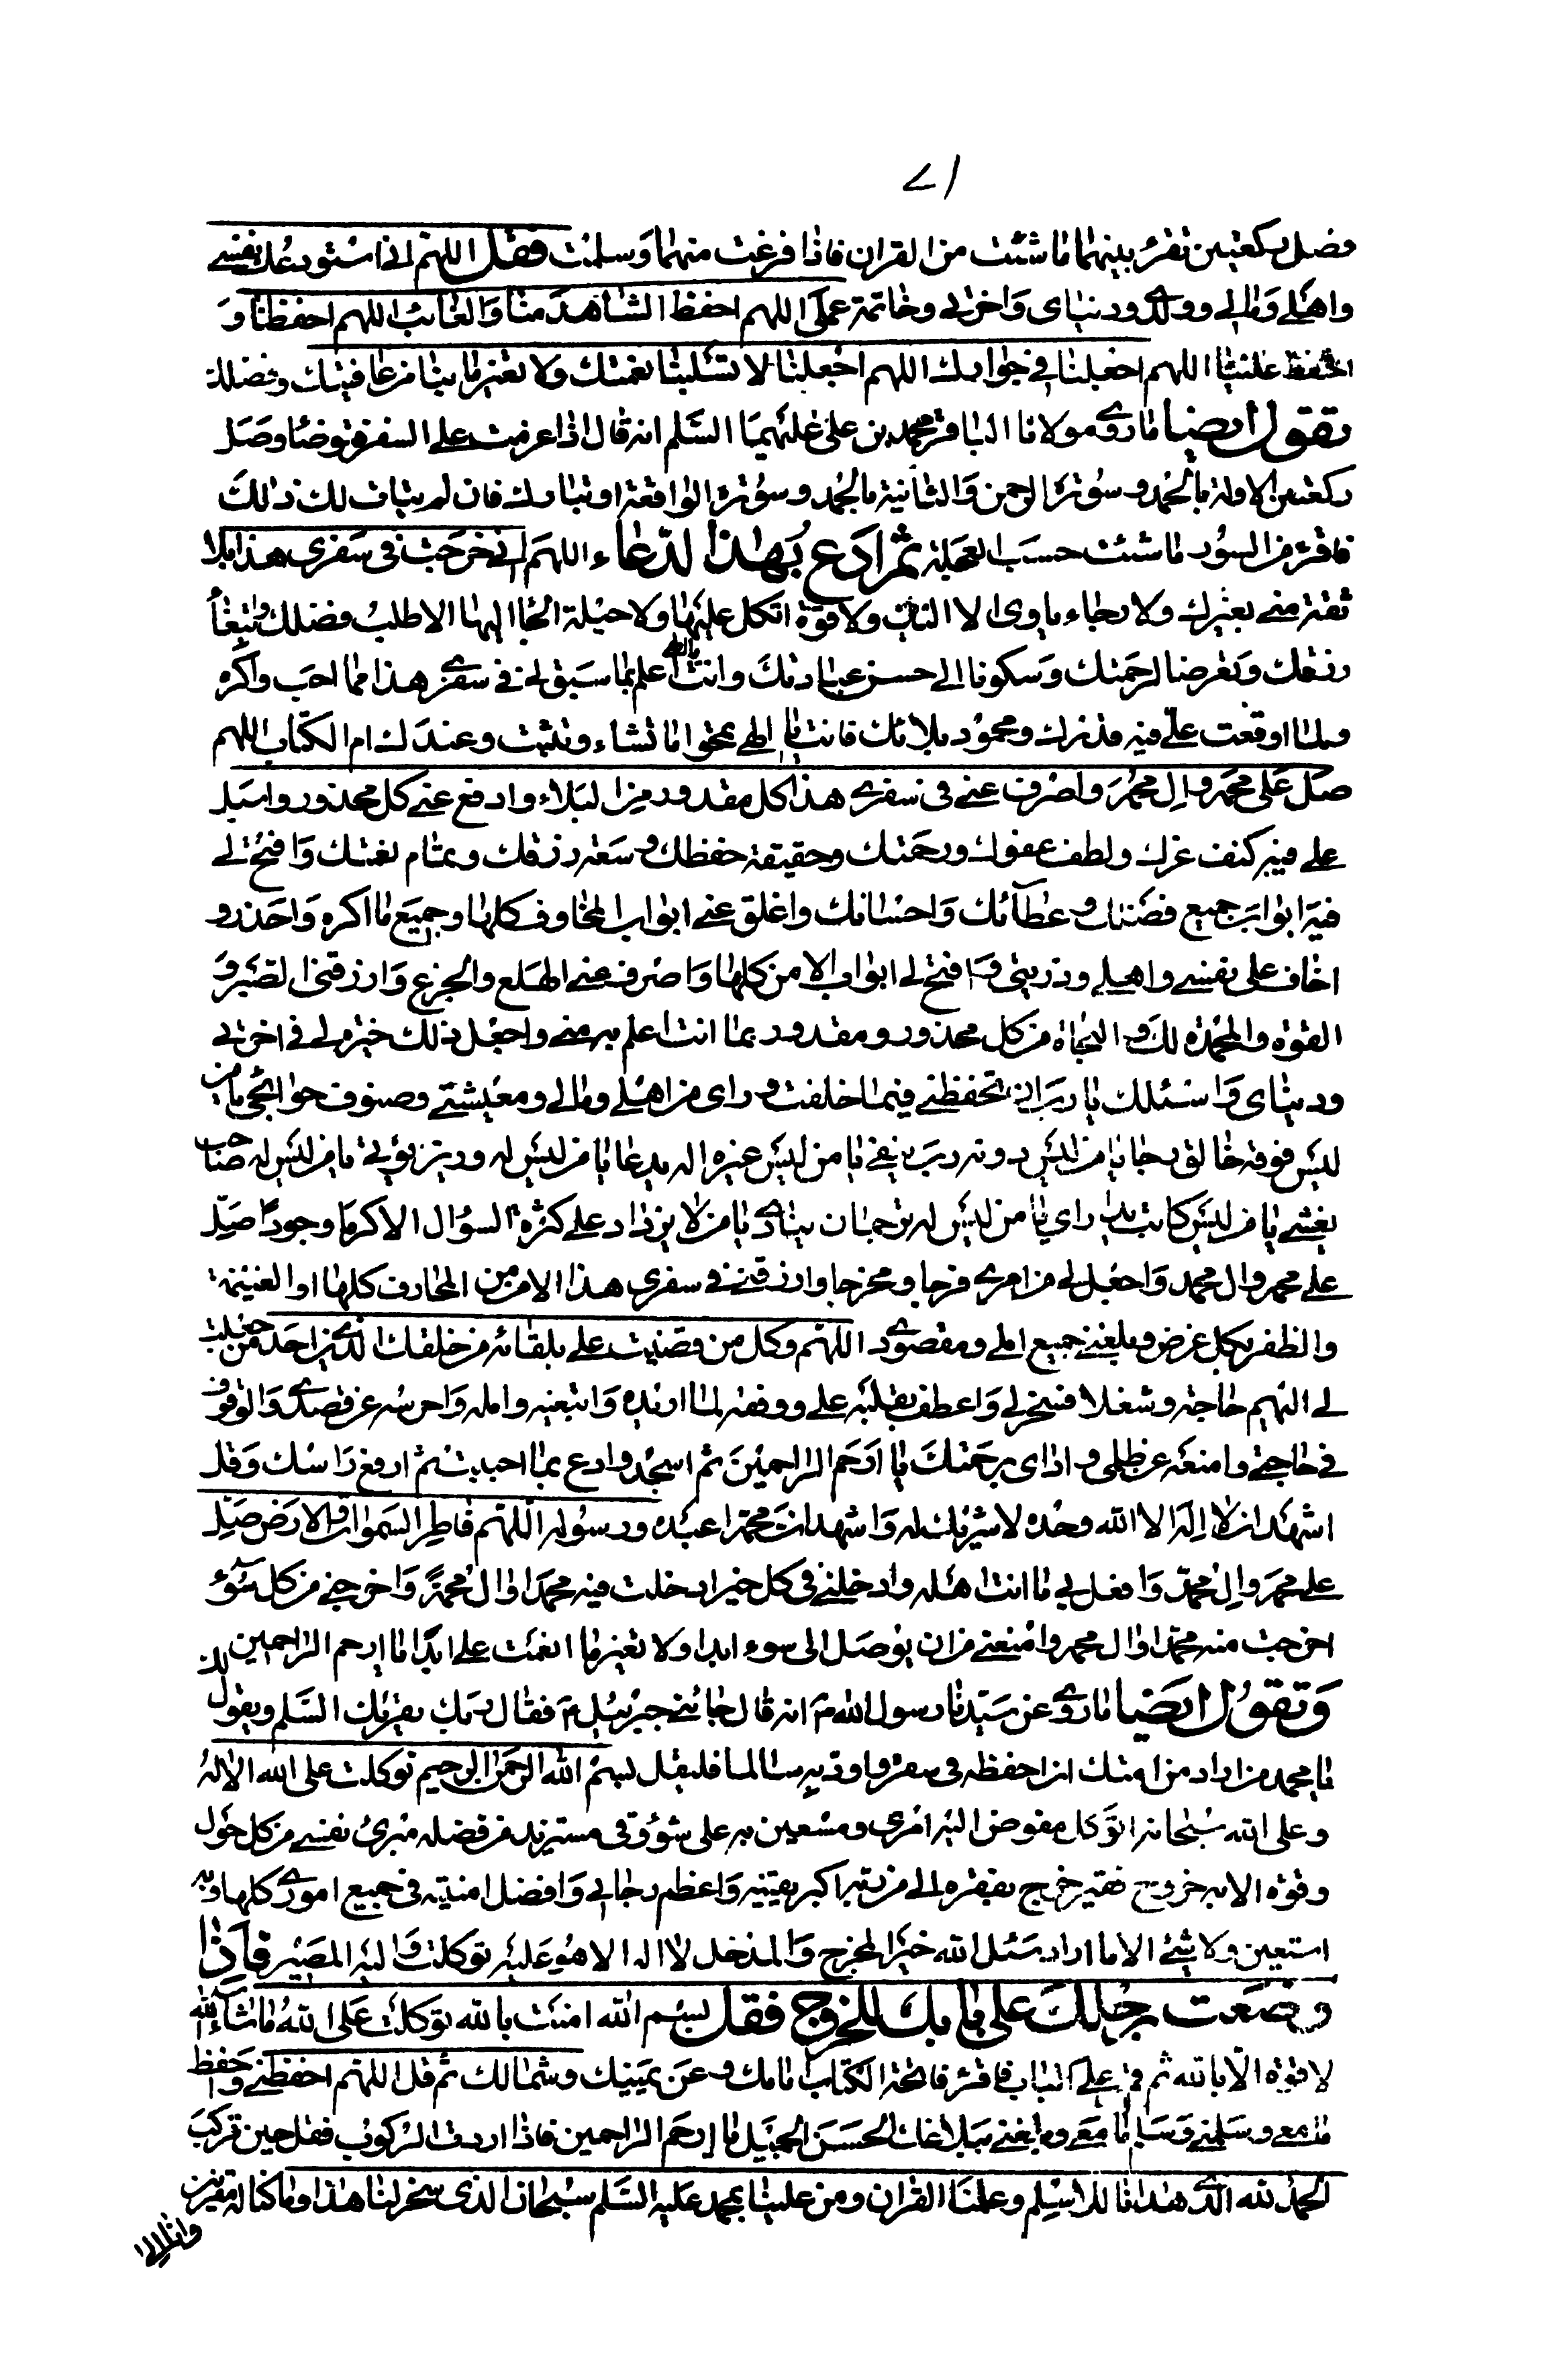 ٧١
فصل ركعتين تقرء بينهما ما شئت من القران فاذا فرغت منهما وسلمت فقل اللهم انى استودعك نفسى
واهلى ومالى وولدى ودنياى واخرتى وخاتمة عملى اللهم احفظ الشاهد منا والغائب اللهم احفظنا و
احفظ علينا اللهم اجعلنا فى جوارك اللهم اجعلنا لا تسلبنا نعمتك ولا تغير ما بنا من عافيتك وفضلك
تقول ايضا ما روى مولانا الباقر محمد بن على عليهما السلم انه قال اذا عزمت على السفر فتوضا وصل
ركعتين الاولة بالحمد وسورة الرحمن والثانية بالحمد وسورة الواقعة او تبارك فان لم يتات لك ذلك
فاقرء من السور ما شئت حسب العجلة ثم ادع بهذا الدعاء اللهم انى خرجت فى سفرى هذا بلا
ثقة منى بغيرك ولا رجاء ياوى الا اليك ولا قوة اتكل عليها ولا حيلة الجا اليها الا طلب فضلك وابتغاء
رزقك وتعرضا لرحمتك وسكونا الى حسن عبادتك وانت يا الهى اعلم بما سبق لى فى سفرى هذا مما احب واكره
ومما اوقعت على فيه قدرك ومحمود بلائك فانت يا الهى تمحوا ما تشاء وتثبت وعندك ام الكتاب اللهم
صل على محمد وال محمد واصرف عنى فى سفرى هذا كل مقدور من البلاء وادفع عنى كل محذور واسبل
على فيه كنف عزك ولطف عفوك ورحمتك وحقيقة حفظك وسعة رزقك وتمام نعمتك وافتح لى
فيه ابواب جميع فضلك وعطائك واحسانك واغلق عنى ابواب المخاوف كلها وجميع ما اكره واحذر و
اخاف على نفسى واهلى وذريتى وافتح لى ابواب الامن كلها واصرف عنى الهلع والجزع وارزقنى الصبر و
القوة والمحمدة لك والنجاة من كل محذور ومقدور بما انت اعلم به منى واجعل ذلك خيرة لى فى اخرتى
ودنياى واسئلك يا رب ان تحفظنى فيما خلفت وراى من اهلى ومالى ومعيشتى وصنوف حوائجى يا من
ليس فوقه خالق يرجا يا من ليس دونه رب يتقى يا من ليس غيره اله يدعا يا من ليس له وزير يؤتى يا من ليس له حاجب
يغشى يا من ليس كاتب يدارى يا من ليس له ترجمان ينادى يا من لا يزداد على كثرة السؤال الا كرما وجودا صل
على محمد وال محمد واجعل لى من امرى فرجا ومخرجا وارزقنى فى سفرى هذا الامن من المخاوف كلها او الغنيمة
والظفر بكل غرض وبلغنى جميع املى ومقصودى اللهم وكل من قضيت على بلقائه من خلقك الذين احد من جعلت
لى اليهم حاجة وشغلا فسخره لى واعطف بقلبه على ووفقه لما اريده وابتغيه وامله واحرسه عن قصدى والوقوف
فى حاجتى وامنعه عن ظلمى واذاى برحمتك يا ارحم الراحمين ثم اسجد وادع بما احببت ثم ارفع راسك وقل
اشهد ان لا اله الا الله وحده لا شريك له واشهد ان محمدا عبده ورسوله اللهم فاطر السموات والارض صل
على محمد وال محمد وافعل بى ما انت اهله وادخلنى فى كل خير ادخلت فيه محمدا وال محمد واخرجنى من كل سوء
اخرجت منه محمدا وال محمد وامنعنى من ان يوصل الى سوء ابدا ولا تغير ما انعمت على ابدا يا ارحم الراحمين
وتقول ايضا ما روى عن سيدنا رسول الله ص انه قال جائنى جبرئيل ع فقال ربك يقرئك السلم ويقول لك
يا محمد من اراد من امتك ان احفظه فى سفره واوديه سالما فليقل بسم الله الرحمن الرحيم توكلت على الله الا له
وعلى الله سبحانه اتوكل مفوض اليه امرى ومستعين به على شؤوقى مستزيد من فضله مبرئ نفسى من كل حول
وقوة الا به خروج فقير خرج بفقره الى من يتبر اكبر يقينه واعظم رجائى وافضل امنيته فى جميع امورى كلها وبه
استعين ولا شئ الا ما اراد اسئل الله خير المخرج والمدخل لا اله الا هو عليه توكلت واليه المصير فاذا
وضعت رجلك على بابك للخروج فقل بسم الله امنت بالله توكلت على الله ما شاء الله
لا قوة الا بالله ثم قف على الباب فاقرء فاتحة الكتاب امامك وعن يمينك وشمالك ثم قل اللهم احفظنى واحفظ
ما معى وسلمنى وسلم ما معى وبلغنى ببلاغك الحسن الجميل يا ارحم الراحمين فاذا اردت الركوب فقل حين تركب
الحمد لله الذى هدانا للاسلم وعلمنا القران ومن علينا بمحمد عليه السلم سبحان الذى سخر لنا هذا وما كنا له مقرنين
وانا الى